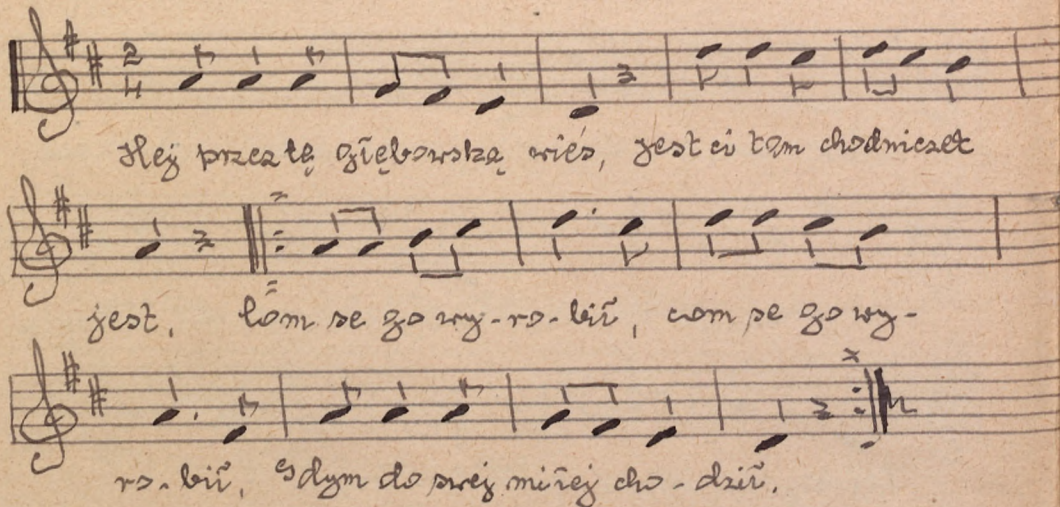 2
4
Hej przez tę głębowską wieś, jest ci tam chodniczek
jest, com se go wy-ro-bił, com se go wy-
ro-bił, gdym do swej miłej cho-dził.